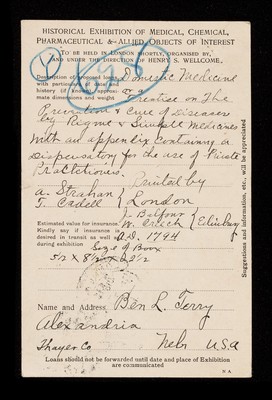 HISTORICAL EXHIBITION OF MEDICAL, CHEMICAL,
PHARMACEUTICAL & ALLIED OBJECTS OF INTEREST
TO BE HELD IN LONDON SHORTLY, ORGANISED BY,
AND UNDER THE DIRECTION OF HENRY S. WELLCOME,
Description of proposed loan, Domestic Medicine
with particulars
history (if known) approxi- Treatise on The
mate dimensions and weight
Prevention & Cure of Diseases
by Regime & Simple Medicines
with an appendix Containing a
Dispensatory for the use of Private
Practitioners. Printed by
A. Strahan
T. Cadell } London
J. Balfour
Estimated value for insurance W. Creech } Edinburg
Kindly say if insurance is
desired in transit as well as A.D. 1794
during exhibition
Size of Book
5½ X 8½ X 2½
Name and Address Ben L. Terry
Alexandria
Thayer Co Nebr U.S.A
Loans should not be forwarded until date and place of Exhibition
are communicated
Suggestions and information, etc., will be appreciated